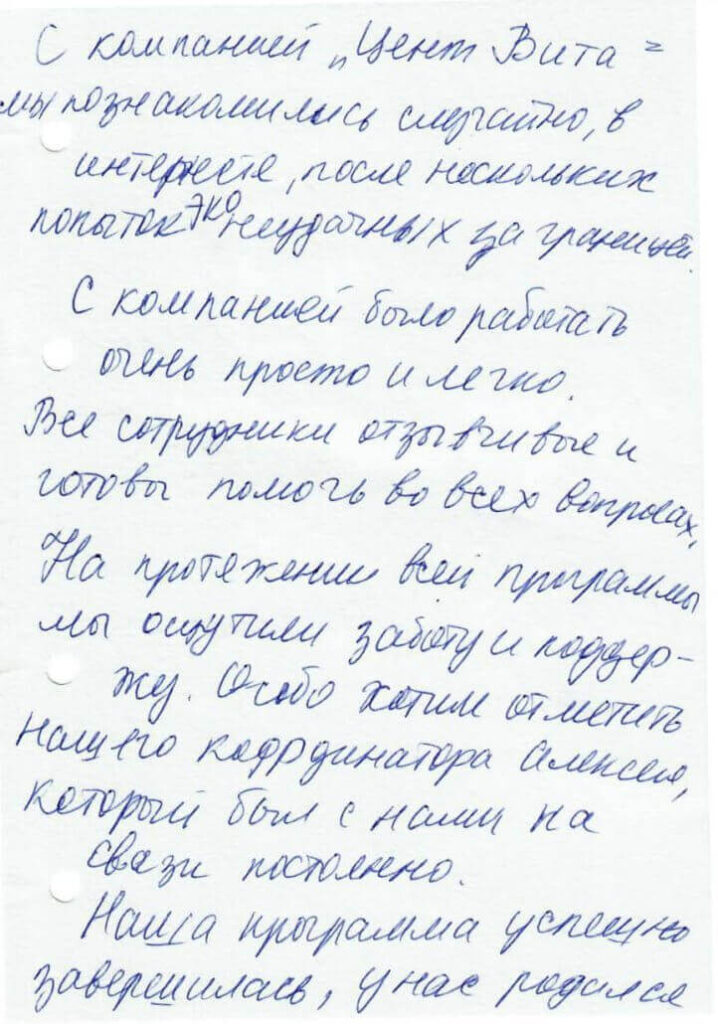 С компанией „Цент Вита"
мы познакомились случайно, в
интернете, после нескольких
попыток ЭКО неудачных за границей.
С компанией было работать
очень просто и легко.
Все сотрудники отзывчивые и
готовы помочь во всех вопросах.
На протяжении всей программы
мы ощутили заботу и поддер-
жу. Особо хотим отметить
нашего координатора Алексея,
который был с нами на
связи постоянно.
Наша программа успешно
завершилась, у нас родился